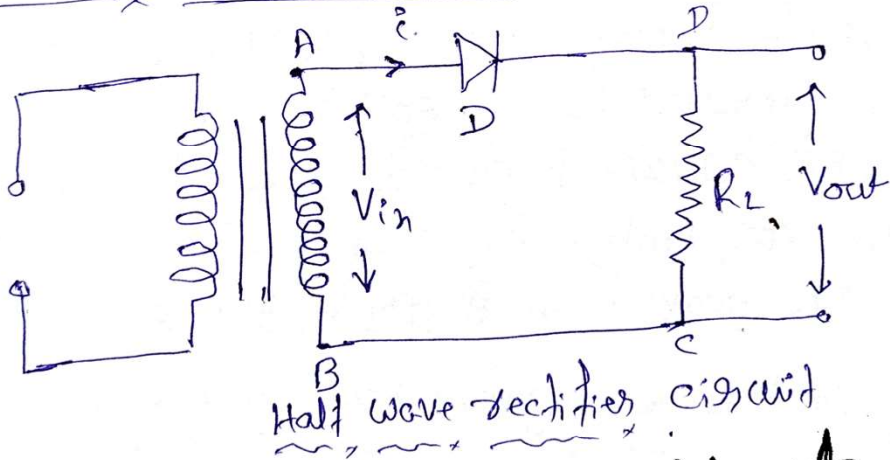 A
i
D
D
Vin
RL
Vout
B
C
Half wave rectifier circuit